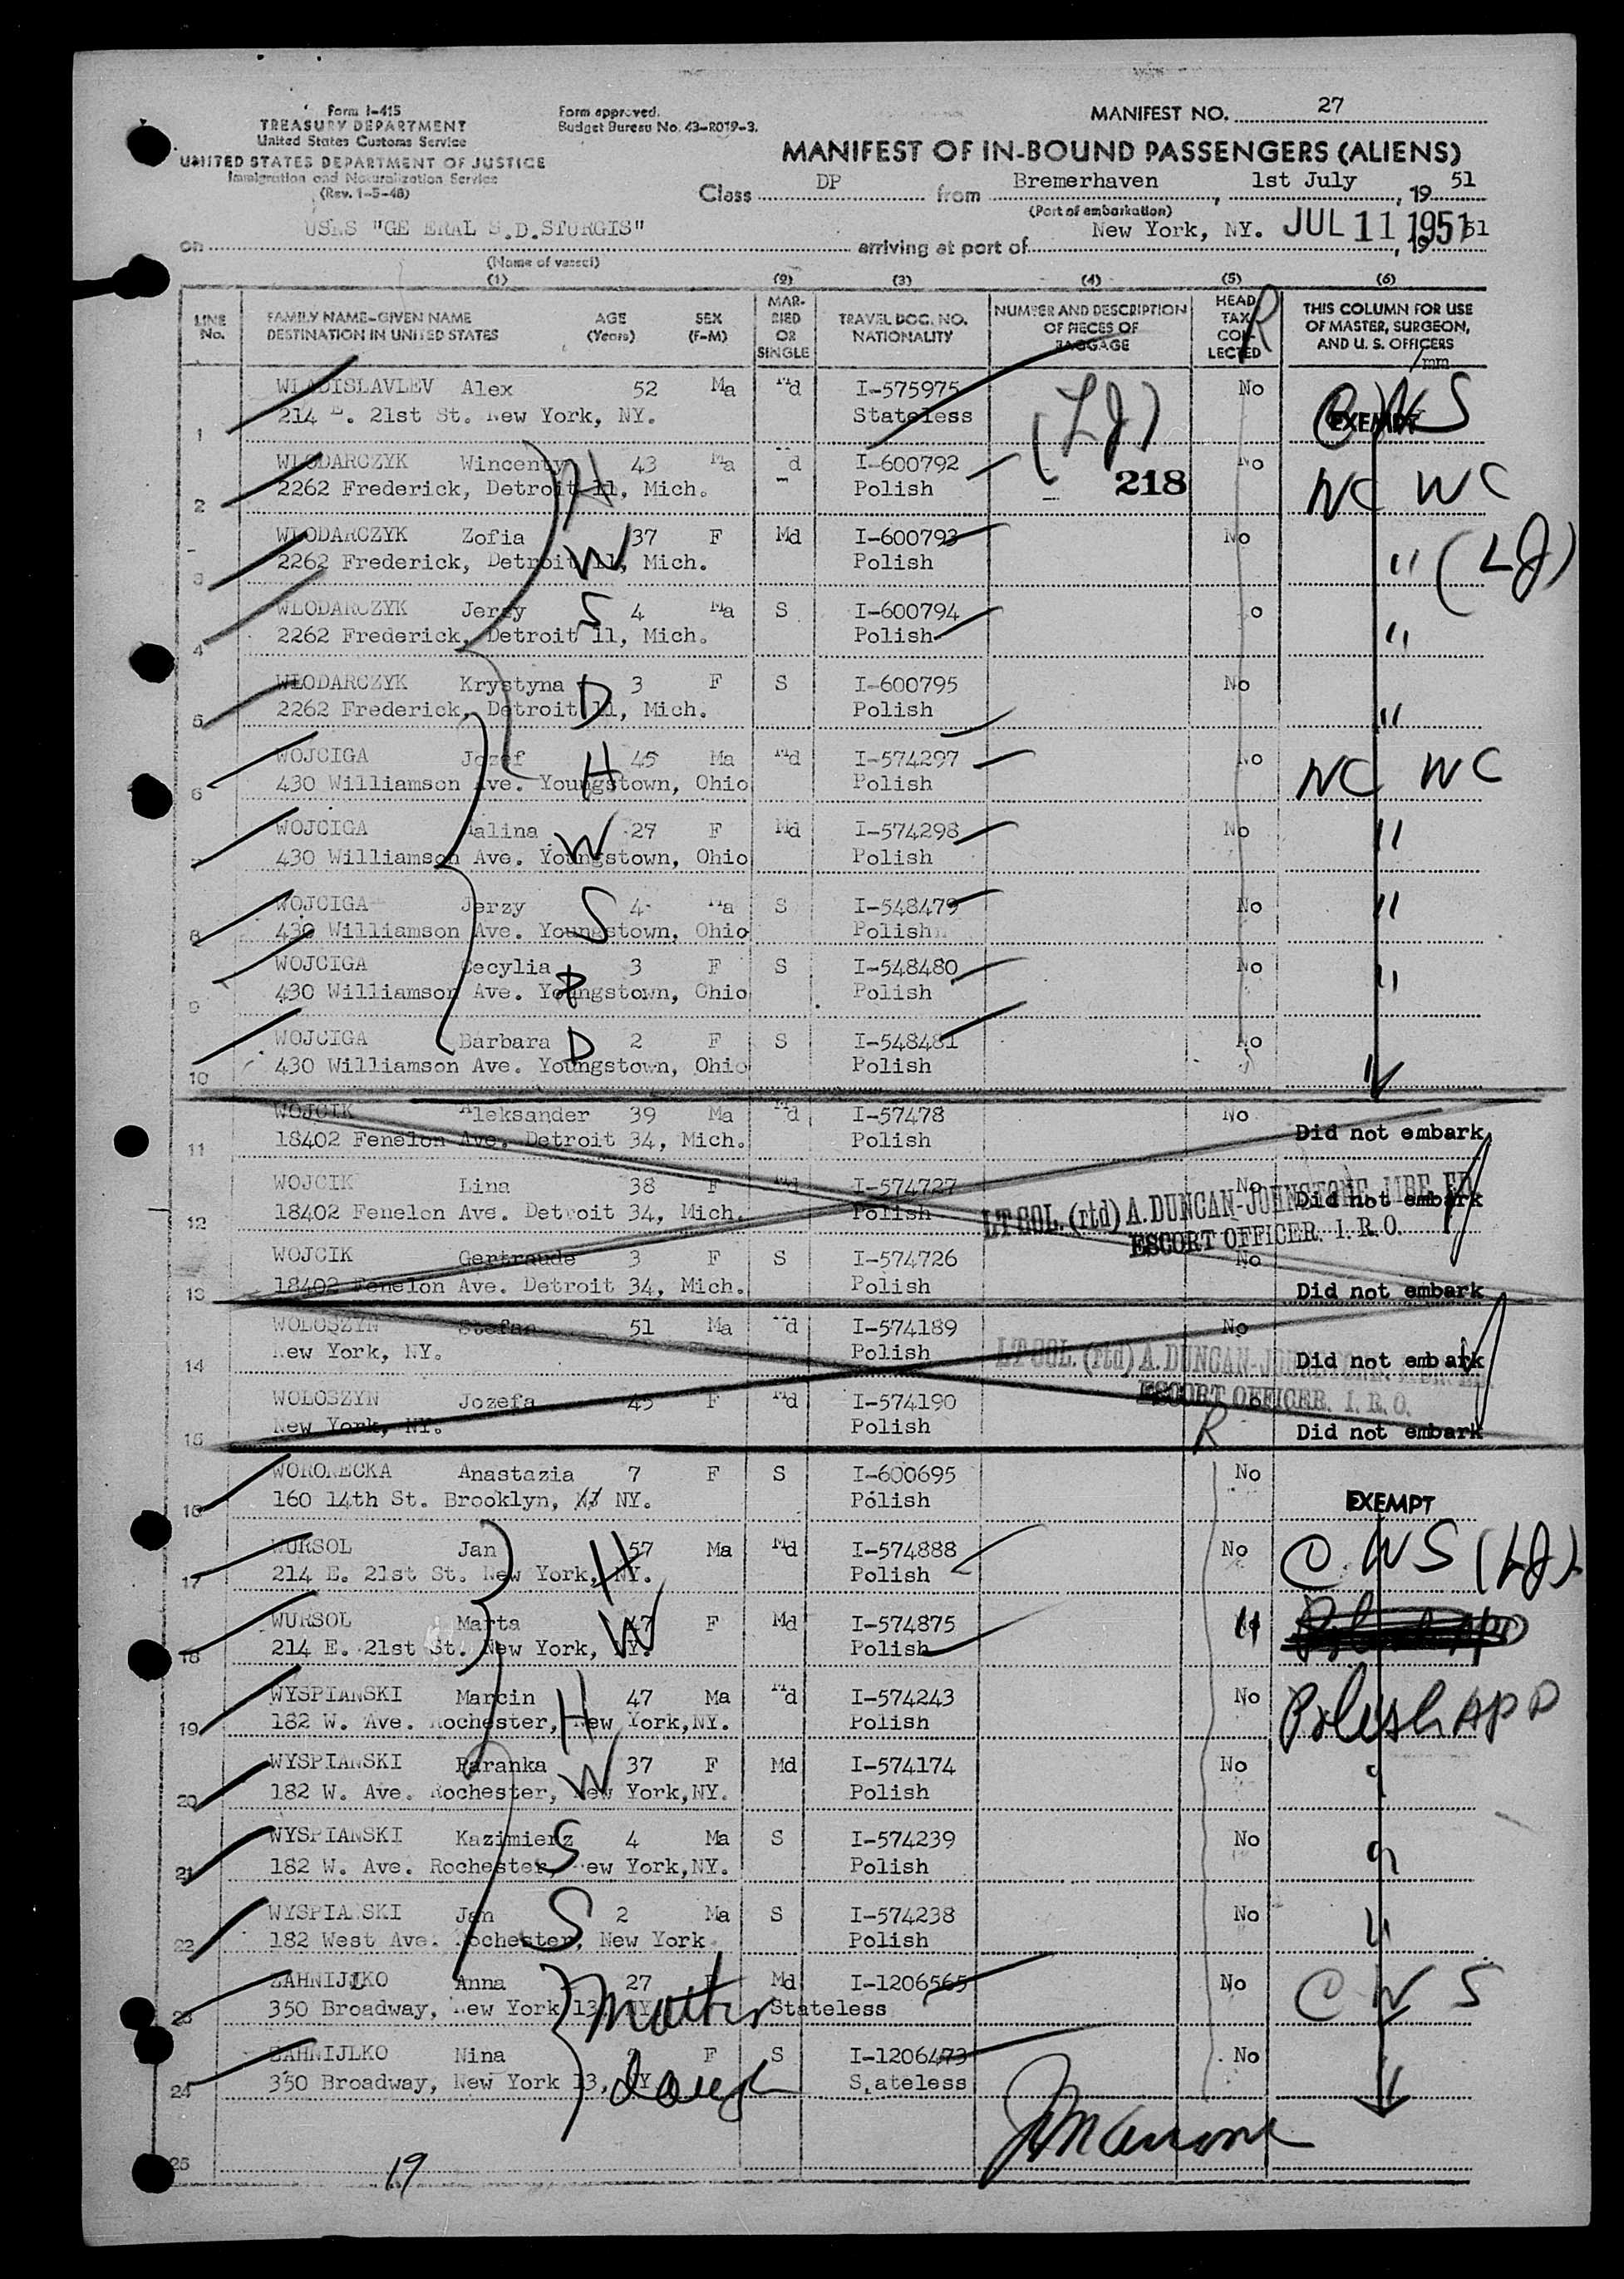 Form I-415
TREASURY DEPARTMENT
United States Customs Service
UNITED STATES DEPARTMENT OF JUSTICE
Immigration and Naturalization Service
(Rev. 1-5-48)
Form approved.
Budget Bureau No. 43-R019-3.
MANIFEST NO. 27
MANIFEST OF IN-BOUND PASSENGERS (ALIENS)
Class DP from Bremerhaven, 1st July, 19 51
(Port of embarkation)
on USNS "GE ERAL S.D.STURGIS" arriving at port of New York, NY. JUL 11 1951, 19 51
(Name of vessel)
(1) (2) (3) (4) (5) (6)
LINE No.
FAMILY NAME-GIVEN NAME DESTINATION IN UNITED STATES
AGE (Years)
SEX (F-M)
MAR-RIED OR SINGLE
TRAVEL DOC. NO. NATIONALITY
NUMBER AND DESCRIPTION OF PIECES OF BAGGAGE
HEAD TAX COL-LECTED
THIS COLUMN FOR USE OF MASTER, SURGEON, AND U. S. OFFICERS
R
/mm
WLADISLAVLEV Alex 52 Ma Md I-575975 No CWS
1 214 E. 21st St. New York, NY. Stateless (LJ) EXEMPT
WLODARCZYK Wincenty H 43 Ma d I-600792 No NC WC
2 2262 Frederick, Detroit 11, Mich. Polish 218
WLODARCZYK Zofia W 37 F Md I-600793 No
3 2262 Frederick, Detroit 11, Mich. Polish " (LJ)
WLODARCZYK Jerzy S 4 Ma S I-600794 o
4 2262 Frederick, Detroit 11, Mich. Polish "
WLODARCZYK Krystyna D 3 F S I-600795 No
5 2262 Frederick, Detroit 11, Mich. Polish "
WOJCIGA Jozef H 45 Ma Md I-574297 No NC WC
6 430 Williamson Ave. Youngstown, Ohio Polish
WOJCIGA Halina W 27 F Md I-574298 No "
7 430 Williamson Ave. Youngstown, Ohio Polish
WOJCIGA Jerzy S 4 Ma S I-548479 No "
8 430 Williamson Ave. Youngstown, Ohio Polish
WOJCIGA Cecylia D 3 F S I-548480 No "
9 430 Williamson Ave. Youngstown, Ohio Polish
WOJCIGA Barbara D 2 F S I-548481 No
10 430 Williamson Ave. Youngstown, Ohio Polish "
WOJCIK Aleksander 39 Ma Md I-57478 No
11 18402 Fenelon Ave. Detroit 34, Mich. Polish Did not embark
WOJCIK Lina 38 F Md I-574727 No Did not embark
12 18402 Fenelon Ave. Detroit 34, Mich. Polish
LT COL. (rtd) A. DUNCAN-JOHNSTONE
ESCORT OFFICER. I. R. O.
WOJCIK Gertraude 3 F S I-574726 No
13 18402 Fenelon Ave. Detroit 34, Mich. Polish Did not embark
WOLOSZYN Stefan 51 Ma Md I-574189 No
14 New York, NY. Polish Did not embark
LT COL. (rtd) A. DUNCAN-JOHNSTONE
ESCORT OFFICER. I. R. O.
WOLOSZYN Jozefa 45 F Md I-574190
15 New York, NY. Polish R Did not embark
WORONECKA Anastazia 7 F S I-600695 No
16 160 14th St. Brooklyn, NY. Polish EXEMPT
WURSOL Jan H 57 Ma Md I-574888 No C.WS (LJ)
17 214 E. 21st St. New York, NY. Polish
WURSOL Marta W 47 F Md I-574875 "
18 214 E. 21st St. New York, NY. Polish
WYSPIANSKI Marcin H 47 Ma Md I-574243 No Polish APD
19 182 W. Ave. Rochester, New York,NY. Polish
WYSPIANSKI Paranka W 37 F Md I-574174 No "
20 182 W. Ave. Rochester, New York,NY. Polish
WYSPIANSKI Kazimierz S 4 Ma S I-574239 No "
21 182 W. Ave. Rochester, New York,NY. Polish
WYSPIA SKI Jan S 2 Ma S I-574238 No "
22 182 West Ave. Rochester, New York Polish
ZAHNIJLKO Anna 27 F Md I-1206565 No CWS
23 350 Broadway, New York 13, NY Mother Stateless
ZAHNIJLKO Nina F S I-1206473 No "
24 350 Broadway, New York 13, NY Daugh S.ateless
25
19